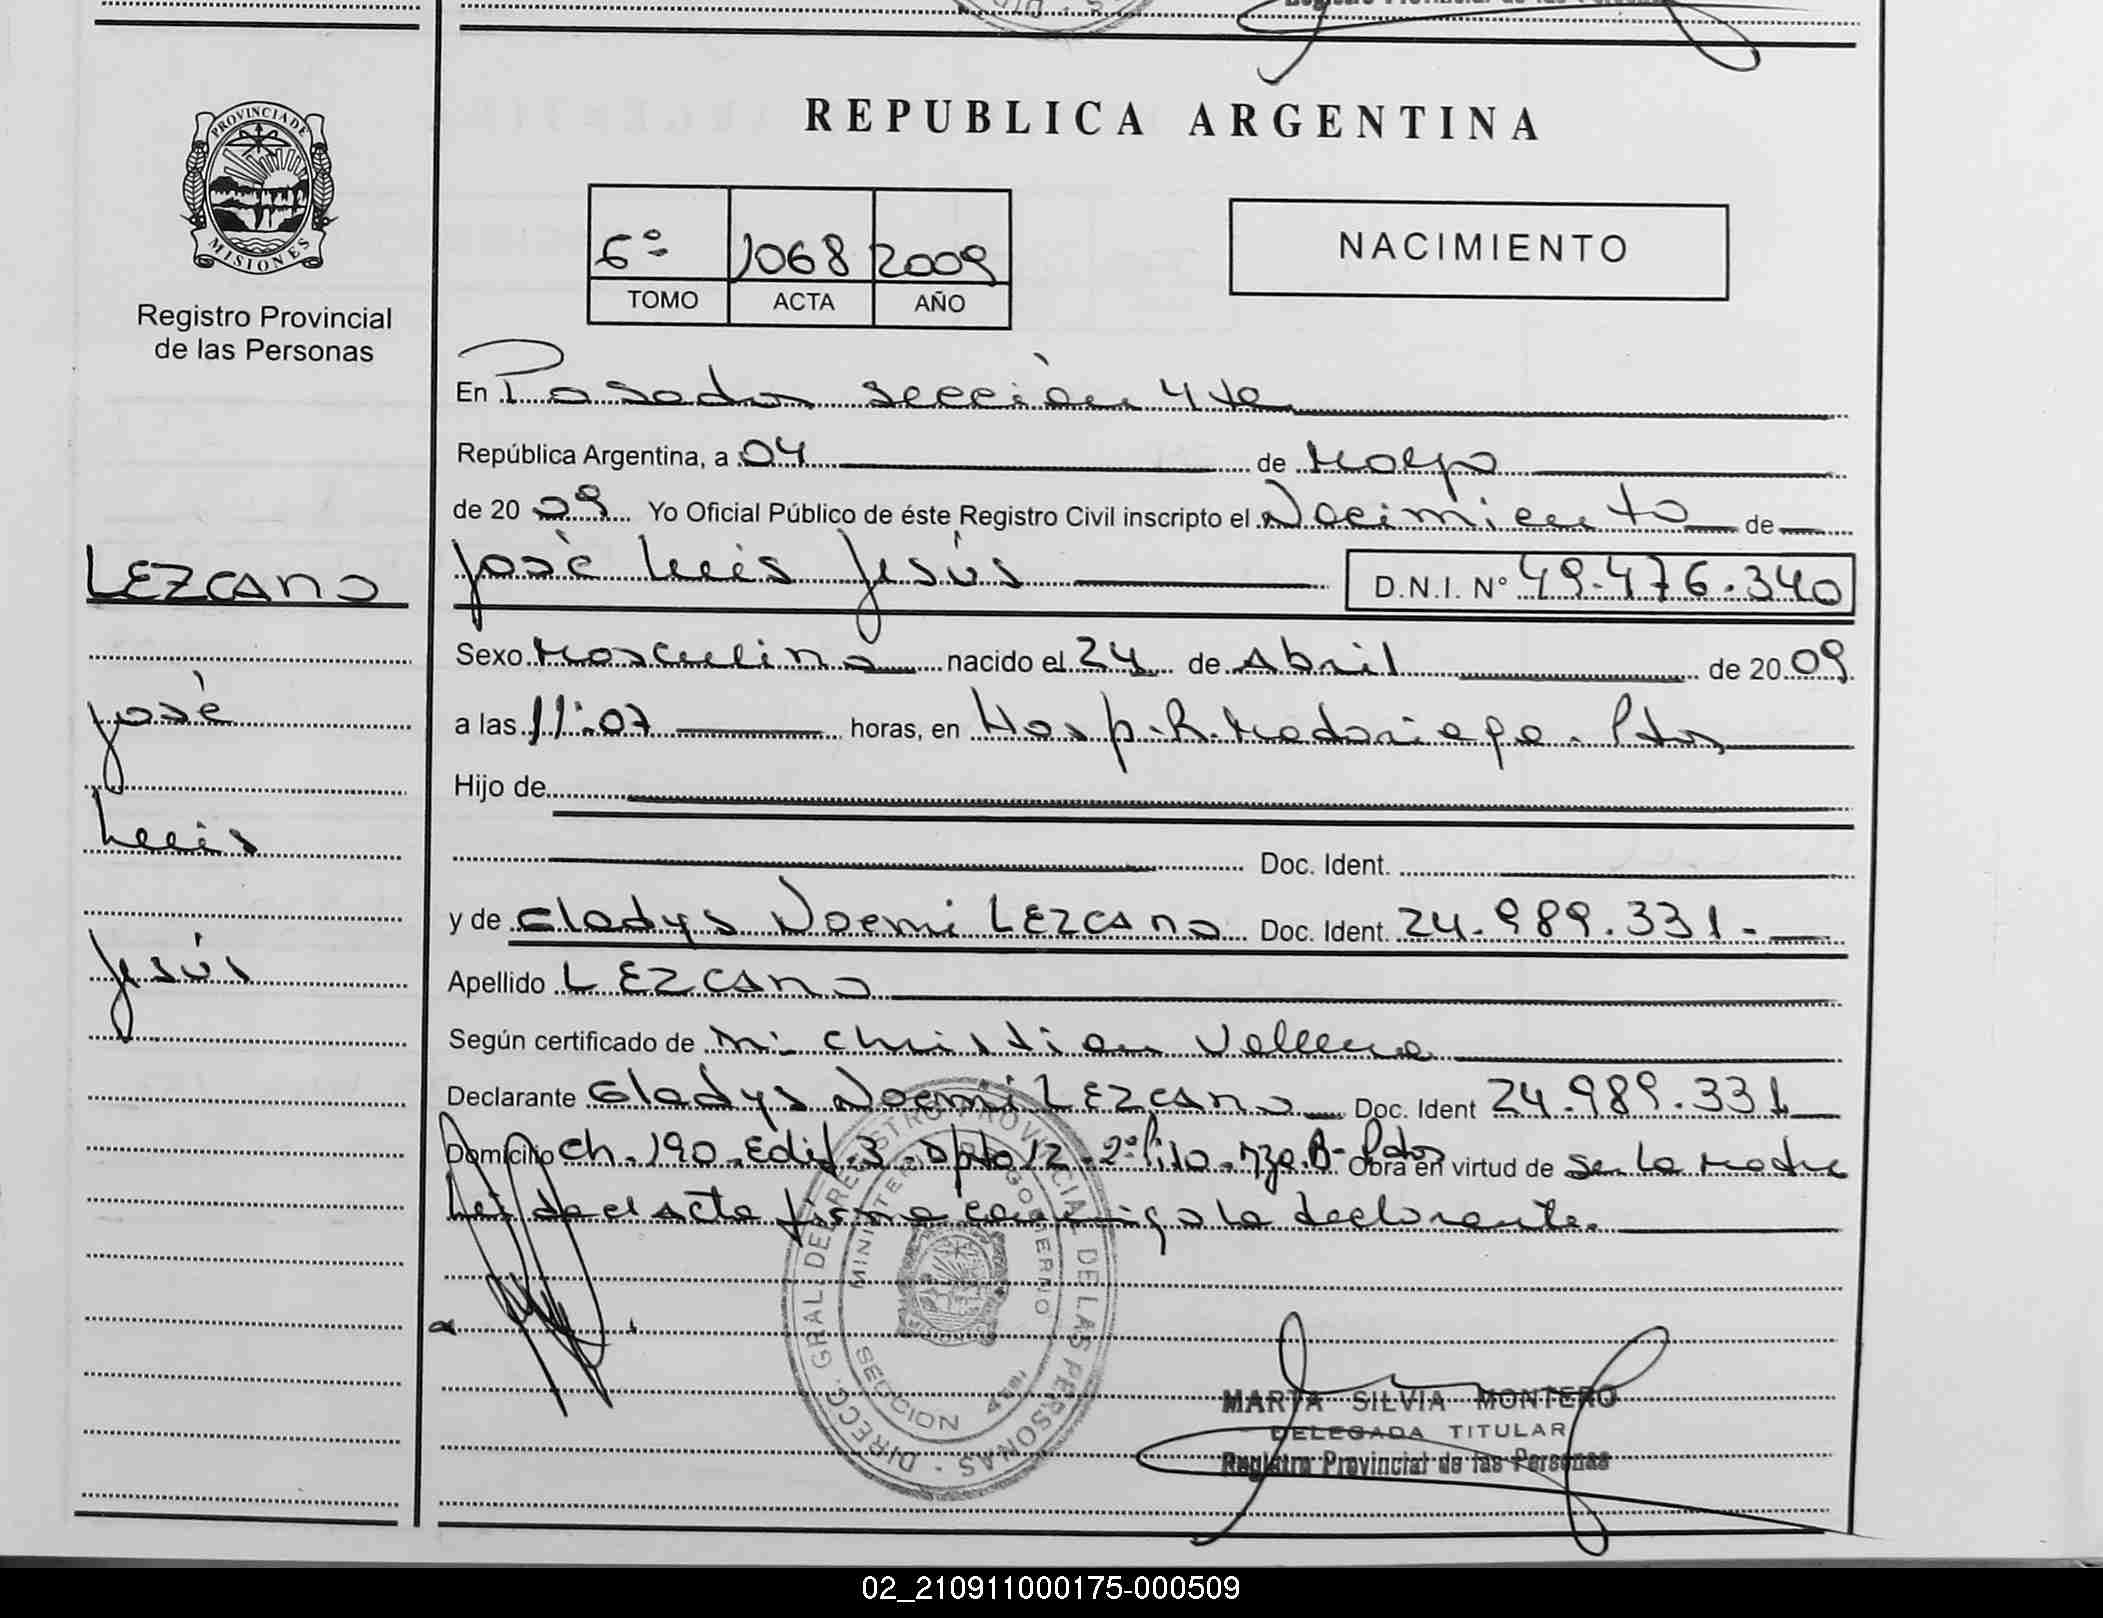 Registro Provincial de las Personas
REPUBLICA ARGENTINA
PROVINCIA DE
MISIONES
Registro Provincial
de las Personas
6º 1068 2009
TOMO ACTA AÑO
NACIMIENTO
En Posadas sección 4ta
República Argentina, a 04 de Mayo
de 2009 Yo Oficial Público de éste Registro Civil inscripto el Nacimiento de
LEZCANO
José Luis Jesús D.N.I. Nº 49.476.340
Sexo Masculino nacido el 24 de Abril de 2009
José
a las 11:07 horas, en Hosp. R. Madariaga - Pdas
Hijo de
Luis
Doc. Ident.
y de Gladys Noemi LEZCANO Doc. Ident. 24.989.331.-
Jesús
Apellido LEZCANO
Según certificado de Christian
Declarante Gladys Noemi LEZCANO Doc. Ident 24.989.331
Domicilio Ch. 190. Edif. 3. Dpto 12. 2º Piso. Mza. B- Pdas Obra en virtud de ser la madre
Leída el acta firma conmigo la declarante.
DIRECC. GRAL. DEL REGISTRO PROVINCIAL DE LAS PERSONAS
MINISTERIO GOBIERNO
SECCION 4ta
MARTA SILVIA MONTERO
DELEGADA TITULAR
Registro Provincial de las Personas
02_210911000175-000509